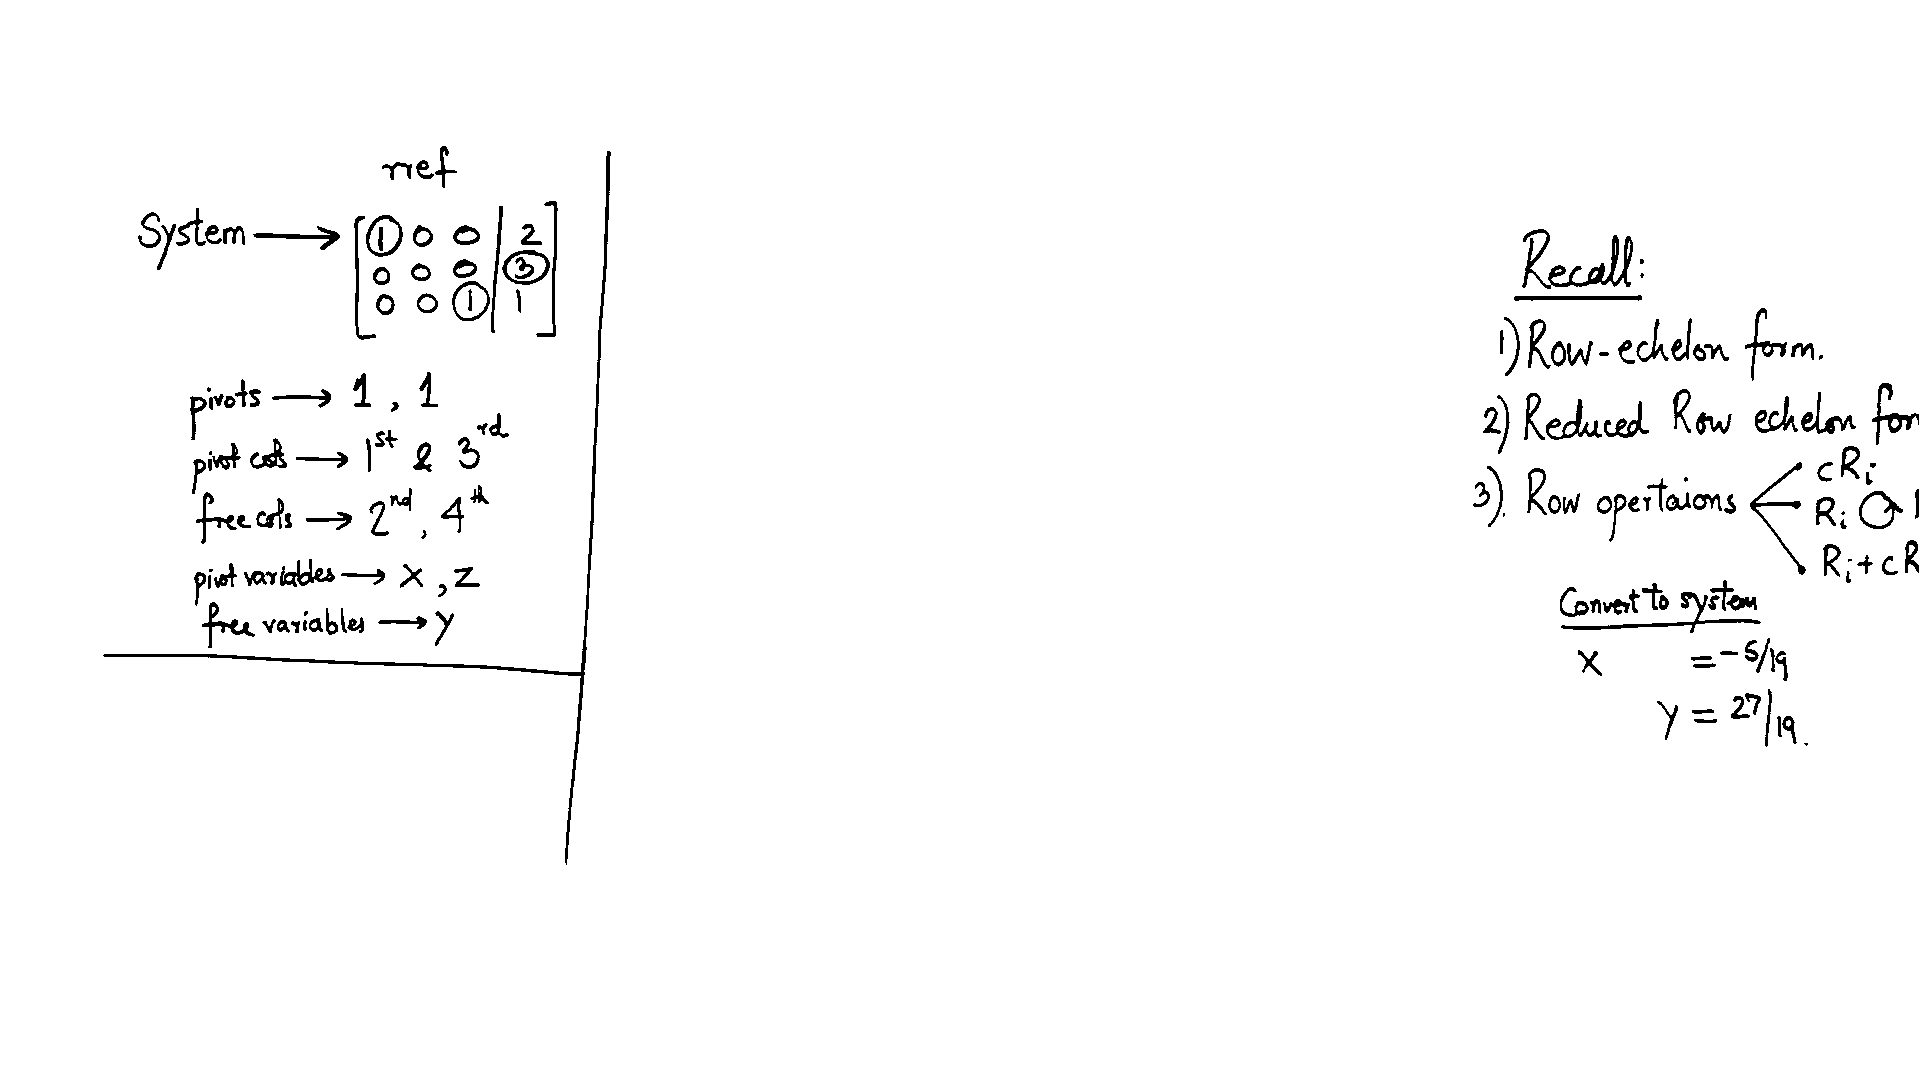 rref
System → [ 1 0 0 | 2 ]
[ 0 0 0 | 3 ]
[ 0 0 1 | 1 ]
pivots → 1, 1
pivot cols → 1st & 3rd
free cols → 2nd, 4th
pivot variables → x, z
free variables → y
Recall:
1) Row-echelon form.
2) Reduced Row echelon for
3). Row opertaions
cRi
Ri
Ri + cR
Convert to system
x = -5/19
y = 27/19.